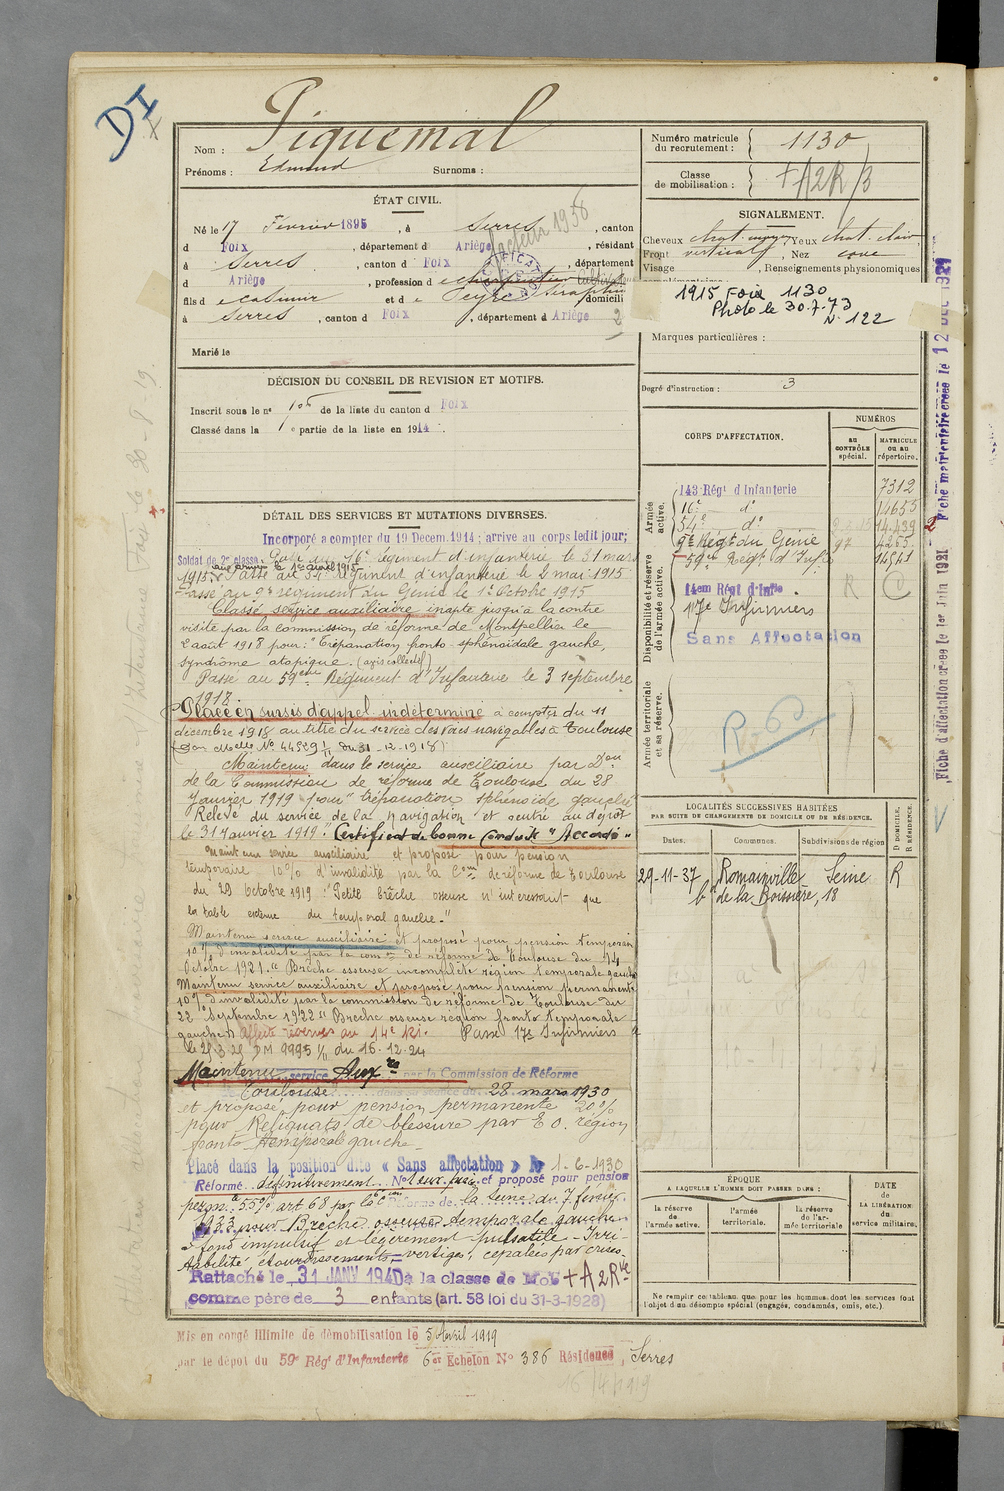 DI
Piquemal
Nom :
Prénoms : Edmond Surnoms :
ÉTAT CIVIL.
Né le 17 Février 1895, à Serres, canton
d Foix, département d Ariège, résidant
à Serres, canton d Foix, département
d Ariège, profession d
facteur 1938
CERTIFICAT
fils d e Casimir et d e Peyre Séraphine domicili
à Serres, canton d Foix, département d Ariège 2
Marié le
DÉCISION DU CONSEIL DE REVISION ET MOTIFS.
Inscrit sous le n° 105 de la liste du canton d Foix
Classé dans la 1e partie de la liste en 1914.
DÉTAIL DES SERVICES ET MUTATIONS DIVERSES.
Incorporé a compter du 19 Decem. 1914 ; arrive au corps ledit jour;
Soldat de 2e classe. Passé au 16e Régiment d'infanterie le 31 mars
1915. Passé au 54e Régiment d'infanterie le 2 mai 1915
Passé au 9e régiment du Génie le 1er Octobre 1915
Classé service auxiliaire inapte jusqu'à la contre
visite par la Commission de réforme de Montpellier le
2 août 1918 pour : "Trépanation fronto-sphénoïdale gauche,
syndrome atopique. (avis collectif)
Passé au 59ème Régiment d'Infanterie le 3 septembre
1918.
Placé en sursis d'appel indéterminé à compter du 11
décembre 1918 au titre du service des voies navigables à Toulouse
du 31-12-1918)
Maintenu dans le service auxiliaire par Don
de la Commission de réforme de Toulouse du 28
Janvier 1919 pour "trépanation sphénoïde gauche"
Relevé du service de la navigation et rentré au dépôt
le 31 Janvier 1919. Certificat de Bonne Conduite "Accordé"
Maintenu service auxiliaire et proposé pour pension
temporaire 10% d'invalidité par la Con de réforme de Toulouse
du 29 octobre 1919 "Petite brèche osseuse n'intéressant que
la table externe du temporal gauche."
Maintenu service auxiliaire et proposé pour pension temporaire
10% d'invalidité par la Con de réforme de Toulouse du 14
Octobre 1921. "Brèche osseuse incomplète région temporale gauche
Maintenu service auxiliaire et proposé pour pension permanente
10% d'invalidité par la commission de réforme de Toulouse du
22 septembre 1922 "Brèche osseuse région fronto temporale
gauche" Affecté réserves au 14e RI. Passé 17e Infirmiers
le 25.3.25 DM 9995 1/11 du 16.12.24
Maintenu service Auxre par la Commission de Réforme
de Toulouse dans sa séance du 28 mars 1930
et proposé pour pension permanente 20%
pour Reliquats de blessure par E O. région
fronto temporale gauche
Placé dans la position dite « Sans affectation » le 1-6-1930
Réformé définitivement N° 1 et proposé pour pension
perm. 55% art 68 par la 6e Con de réforme de la Seine du 7 février
1933 pour Brèche osseuse temporale gauche
à fond impulsif et légèrement pulsatile - Irri-
tabilité étourdissements, vertiges, cépalées par crises.
Rattaché le 31 JANV 1940 à la classe de Mob + A2Rve
comme père de 3 enfants (art. 58 loi du 31-3-1928)
Mis en congé illimité de démobilisation le 5 Avril 1919
par le dépôt du 59e Régt d'Infanterie 6er Echelon N° 386 Résidence, Serres
16/4/1919
Numéro matricule du recrutement : 1130
Classe de mobilisation : + A2R/3
SIGNALEMENT.
Cheveux chat. moyen Yeux chat. clair
Front vertical, Nez cave
Visage , Renseignements physionomiques
1915 Foix 1130
Photo le 30.7.73
N° 122
Marques particulières :
Degré d'instruction : 3
CORPS D'AFFECTATION.
NUMÉROS
au CONTRÔLE spécial.
MATRICULE ou au répertoire.
Armée active.
143 Régt d'Infanterie 7312
16e do 14655
54e do 14.439
9e Régt du Génie 97 4265
59e Régt d'Infie 14541
Disponibilité et réserve de l'armée active.
14em Régt d'Infie R C
17e Infirmiers
Sans Affectation
Armée territoriale et sa réserve.
LOCALITÉS SUCCESSIVES HABITÉES
PAR SUITE DE CHANGEMENTS DE DOMICILE OU DE RÉSIDENCE.
Dates. Communes. Subdivisions de région
D DOMICILE, R RÉSIDENCE.
29-11-37 Romainville Seine R
bd de la Boissière, 18
ÉPOQUE
A LAQUELLE L'HOMME DOIT PASSER DANS :
la réserve de l'armée active.
l'armée territoriale.
la réserve de l'armée territoriale
DATE de LA LIBÉRATION du service militaire.
Ne remplir ce tableau que pour les hommes dont les services font
l'objet d'un décompte spécial (engagés, condamnés, omis, etc.)
Fiche d'affectation créée le 1er Juin 1921
2 Fiche matriculaire créée le 12 DEC 1921